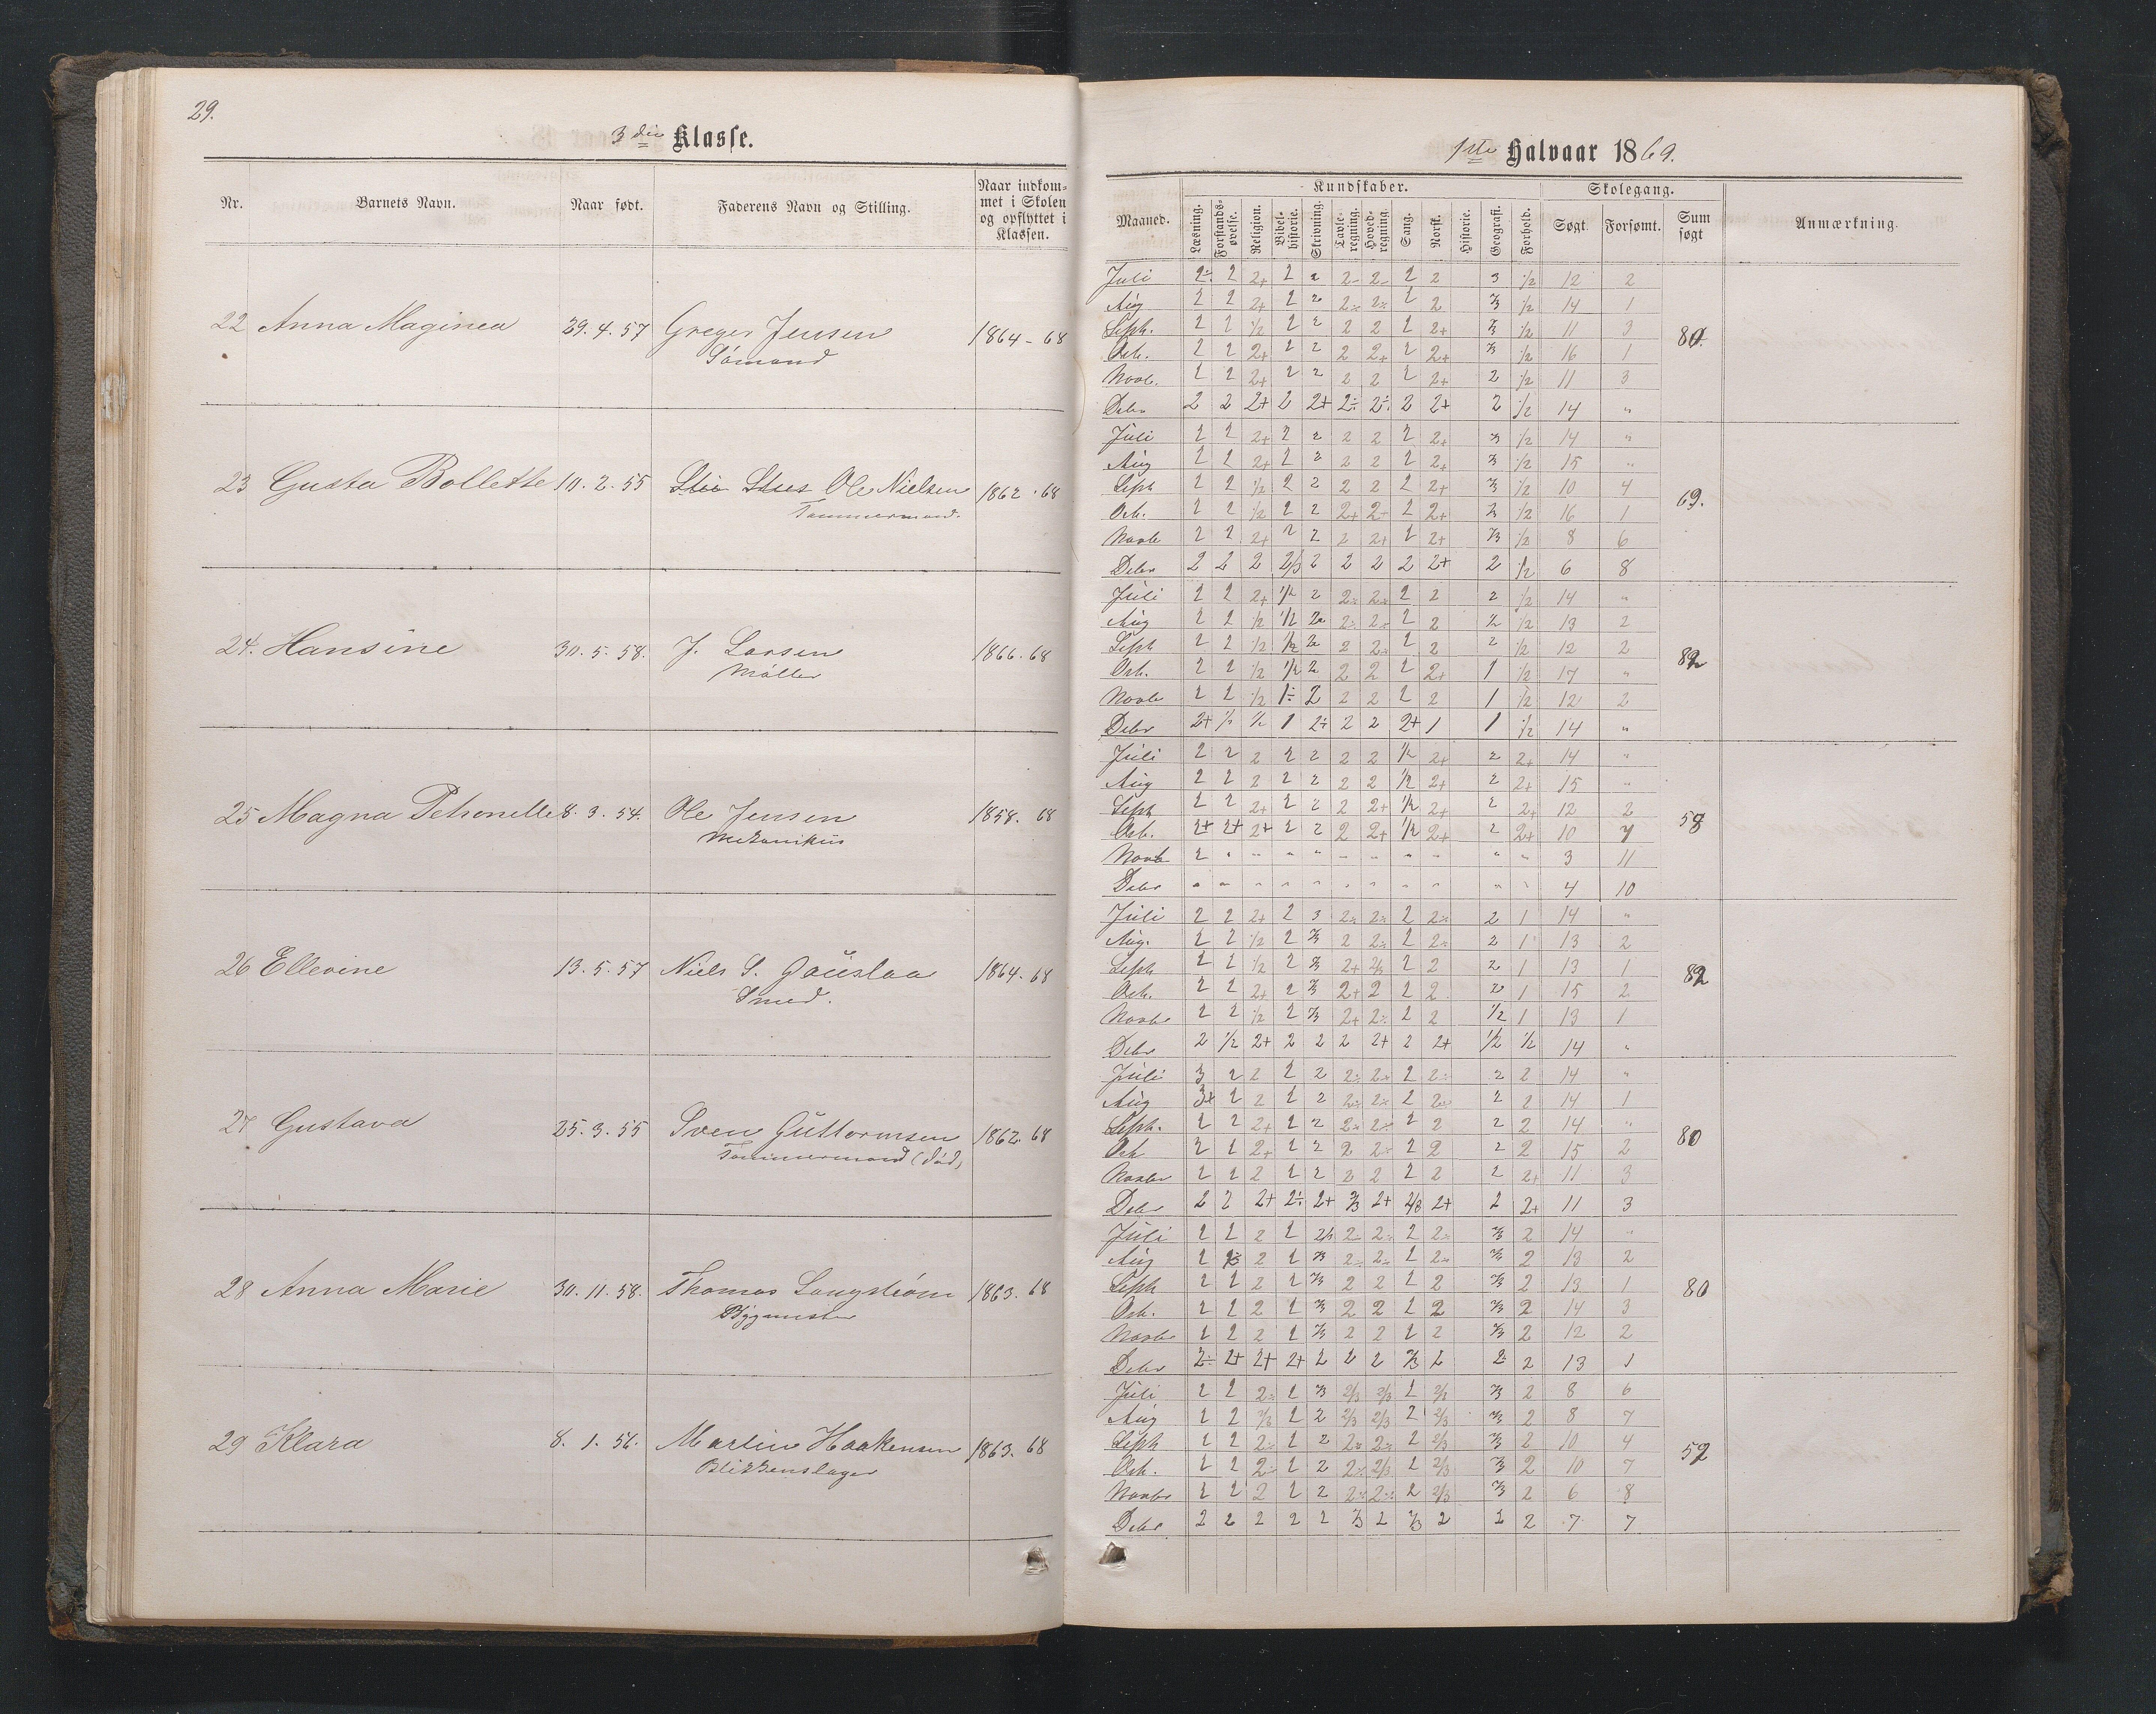 29.
3die Klasse.
Nr. Barnets Navn. Naar født. Faderens Navn og Stilling. Naar indkom-
met i Skolen
og opflyttet i
Klassen.
22 Anna Maginea 29.4.57 Greger Jensen 1864-68
Sømand
23 Gusta Bollette 10.2.55 Ole Nielsen 1862.68
Tømmermand.
24. Hansine 30.5.58. J. Larsen 1866.68
Møller
25 Magna Petronelle 8.3.54. Ole Jensen 1858. 68
Mekanikus
26 Ellevine 13.5.57 Niels S. Gauslaa 1864.68
Smed.
27 Gustava 25.3.55 Sven Guttormsen 1862.68
Tømmermand (død)
28 Anna Marie 30.11.58. Thomas Langstrøm 1863.68
Bygmester
29 Klara 8.1.56. Martin Haakensen 1863.68
Blikkenslager
1ste Halvaar 1869.
Maaned. Kundskaber. Skolegang. Sum søgt Anmærkning.
Læsning. Forstands-øvelse. Religion. Bibel-historie. Skrivning. Tavle-regning. Hoved-regning. Sang. Norsk. Historie. Geografi. Forhold. Søgt. Forsømt.
Juli 2÷ 2 2+ 2 2 2- 2- 2 2 3 1/2 12 2
Aug 2 2 2+ 2 2 2÷ 2÷ 2 2 2/3 1/2 14 1
Septr. 2 2 1/2 2 2 2 2 2 2+ 2/3 1/2 11 3
Octr. 2 2 2+ 2 2 2 2+ 2 2+ 2/3 1/2 16 1
Novb. 2 2 2+ 2 2 2 2 2 2+ 2 1/2 11 3
Debr 2 2 2+ 2 2+ 2÷ 2÷ 2 2+ 2 1/2 14 "
Juli 2 2 2+ 2 2 2 2 2 2+ 2/3 1/2 14 "
Aug 2 2 2+ 2 2 2 2 2 2+ 2/3 1/2 15 "
Septr 2 2 1/2 2 2 2 2 2 2+ 2/3 1/2 10 4
69.
Octr. 2 2 1/2 2 2 2+ 2- 2 2+ 2/3 1/2 16 1
Novbr 2 2 2+ 2 2 2 2+ 2 2+ 2/3 1/2 8 6
Debr 2 2 2 2/3 2 2 2 2 2+ 2 1/2 6 8
Juli 2 2 2+ 1/2 2 2÷ 2÷ 2 2 2 1/2 14 "
Aug 2 2 1/2 1/2 2 2÷ 2÷ 2 2 1/2 1/2 13 2
Septr 2 2 1/2 1/2 2 2 2÷ 2 2 2 1/2 12 2
82
Octr. 2 2 1/2 1/2 2 2 2 2 2+ 1 1/2 17 "
Novbr 2 2 1/2 1÷ 2 2 2 2 2 1 1/2 12 2
Debr 2+ 1/2 1/2 1 2÷ 2 2 2+ 1 1 1/2 14 "
Juli 2 2 2 2 2 2 2 1/2 2+ 2 2+ 14 "
Aug 2 2 2 2 2 2 2 1/2 2+ 2 2+ 15 "
Septr 2 2 2+ 2 2 2 2+ 1/2 2+ 2 2+ 12 2
58
Octr. 2+ 2+ 2+ 2 2 2 2+ 1/2 2+ 2 2+ 10 7
Novbr 2 " " " " " " " " " " 3 11
Debr " " " " " " " " " " " 4 10
Juli 2 2 2+ 2 3 2÷ 2÷ 2 2÷ 2 1 14 "
Aug. 2 2 1/2 2 2/3 2 2÷ 2 2÷ 2 1 13 2
Septr 2 2 1/2 2 2/3 2+ 2/3 2 2 2 1 13 1
82
Octr. 2 2 2+ 2 2/3 2+ 2 2 2 2 1 15 2
Novbr 2 2 1/2 2 2/3 2+ 2÷ 2 2 1/2 1 13 1
Debr 2 1/2 2+ 2 2 2 2+ 2 2+ 1/2 1/2 14 "
Juli 3 2 2 2 2 2÷ 2÷ 2 2÷ 2 2 14 "
Aug 3+ 2 2 2 2 2÷ 2÷ 2 2÷ 2 2 14 1
Septr. 2 2 2+ 2 2 2÷ 2÷ 2 2 2 2 14 "
80
Octr 2 2 2+ 2 2 2 2÷ 2 2 2 2 15 2
Novbr 2 2 2 2 2 2 2 2 2 2 2+ 11 3
Debr 2 2 2+ 2÷ 2+ 2/3 2+ 2/3 2+ 2 2+ 11 3
Juli 2 2 2 2 2/3 2- 2÷ 2 2÷ 2/3 2 14 "
Aug 2 2÷ 2 2 2/3 2÷ 2÷ 2 2÷ 2/3 2 13 2
Septr 2 2 2 2 2/3 2 2 2 2 2/3 2 13 1
80
Octr. 2 2 2 2 2/3 2 2 2 2 2/3 2 14 3
Novbr 2 2 2 2 2/3 2 2 2 2 2/3 2 12 2
Debr 2÷ 2+ 2+ 2+ 2 2 2 2/3 2 2 2 13 1
Juli 2 2 2÷ 2 2/3 2/3 2/3 2 2/3 2/3 2 8 6
Aug 2 2 2/3 2 2 2/3 2/3 2 2/3 2/3 2 8 7
Septr 2 2 2÷ 2 2 2÷ 2÷ 2 2/3 2/3 2 10 4
52
Octr. 2 2 2÷ 2 2 2÷ 2/3 2 2/3 2/3 2 10 7
Novbr 2 2 2 2 2 2÷ 2÷ 2 2/3 2/3 2 6 8
Debr 2 2 2 2 2 2/3 2 2/3 2 2 2 7 7